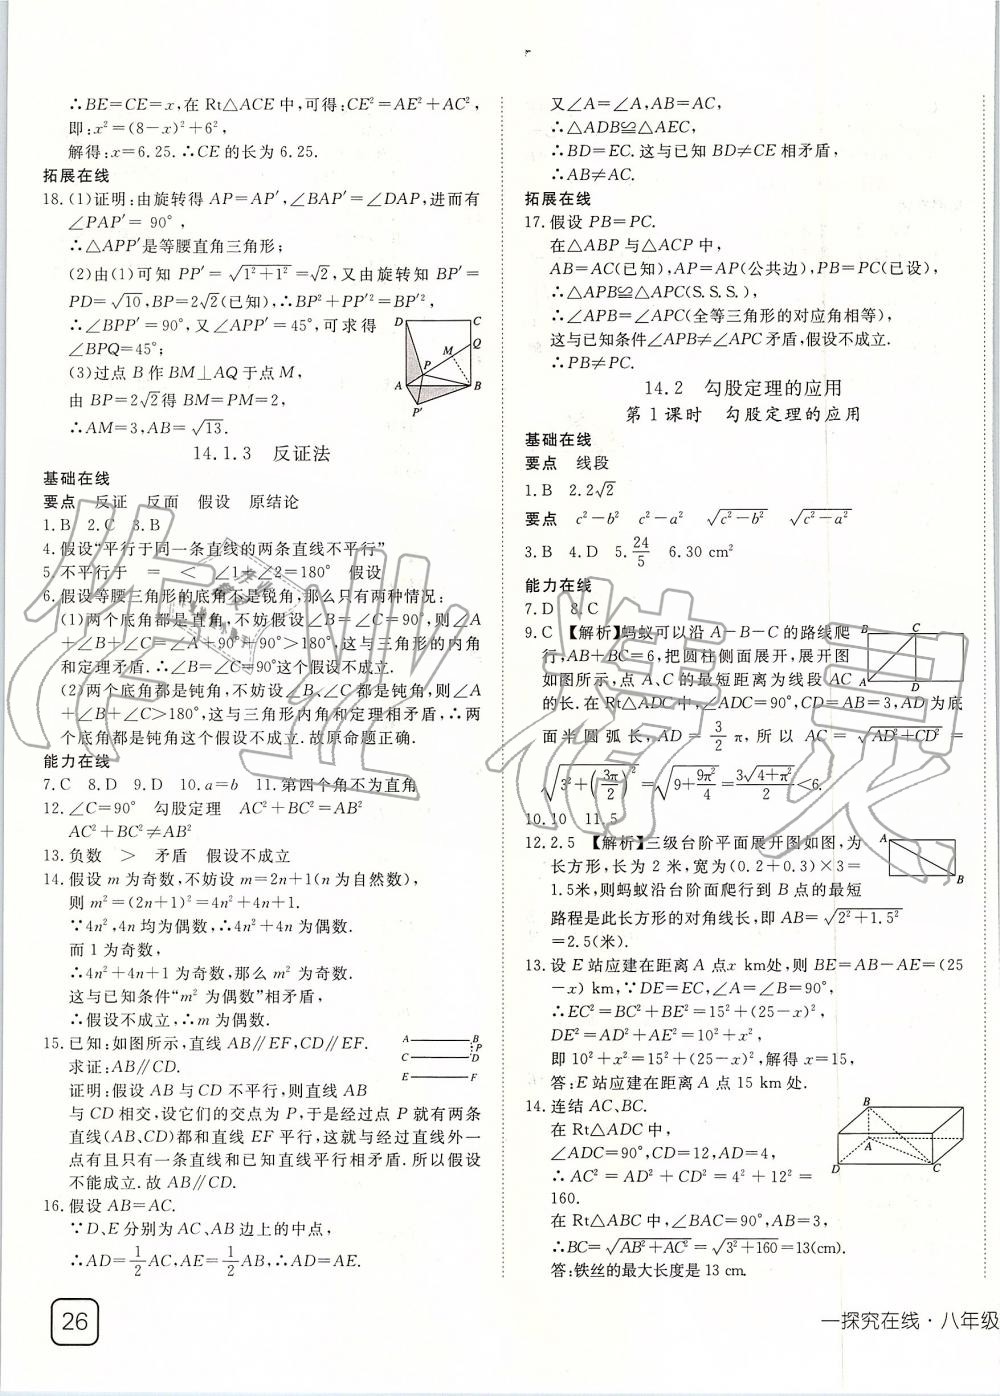 ∴BE=CE=x,在 Rt△ACE 中,可得:CE²=AE²+AC²,
即:x²=(8-x)²+6²,
解得:x=6.25.∴CE 的长为 6.25.
拓展在线
18.(1)证明:由旋转得 AP=AP′,∠BAP′=∠DAP,进而有
∠PAP′= 90°,
∴△APP′是等腰直角三角形;
(2)由(1)可知 PP′=√(1²+1²)=√2,又由旋转知 BP′=
PD=√10,BP=2√2(已知),∴BP²+PP′²=BP′²,
∴∠BPP′=90°,又∠APP′=45°,可求得
∠BPQ=45°;
(3)过点 B 作 BM⊥AQ 于点 M,
由 BP=2√2得 BM=PM=2,
∴AM=3,AB=√13.
D C
Q
M
P
A B
P′
14.1.3 反证法
基础在线
要点 反证 反面 假设 原结论
1.B 2.C 3.B
4.假设“平行于同一条直线的两条直线不平行”
5.不平行于 = < ∠1+∠2=180° 假设
6.假设等腰三角形的底角不是锐角,那么只有两种情况:
(1)两个底角都是直角,不妨假设∠B=∠C=90°,则∠A
+∠B+∠C=∠A+90°+90°>180°,这与三角形的内角
和定理矛盾.∴∠B=∠C=90°这个假设不成立.
(2)两个底角都是钝角,不妨设∠B、∠C 都是钝角,则∠A
+∠B+∠C>180°,这与三角形内角和定理相矛盾,∴两
个底角都是钝角这个假设不成立.故原命题正确.
能力在线
7.C 8.D 9.D 10.a=b 11.第四个角不为直角
12.∠C=90° 勾股定理 AC²+BC²=AB²
AC²+BC²≠AB²
13.负数 > 矛盾 假设不成立
14.假设 m 为奇数,不妨设 m=2n+1(n 为自然数),
则 m²=(2n+1)²=4n²+4n+1.
∵4n²,4n 均为偶数,∴4n²+4n 为偶数.
而 1 为奇数,
∴4n²+4n+1 为奇数,那么 m² 为奇数.
这与已知条件“m² 为偶数”相矛盾,
∴假设不成立,∴m 为偶数.
15.已知:如图所示,直线 AB∥EF,CD∥EF.
求证:AB∥CD.
证明:假设 AB 与 CD 不平行,则直线 AB
与 CD 相交,设它们的交点为 P,于是经过点 P 就有两条
直线(AB、CD)都和直线 EF 平行,这就与经过直线外一
点有且只有一条直线和已知直线平行相矛盾.所以假设
不能成立.故 AB∥CD.
A B
P
C D
E F
16.假设 AB=AC.
∵D、E 分别为 AC、AB 边上的中点,
∴AD=1/2AC,AE=1/2AB,∴AD=AE.
26
又∠A=∠A,AB=AC,
∴△ADB≌△AEC,
∴BD=EC.这与已知 BD≠CE 相矛盾,
∴AB≠AC.
拓展在线
17.假设 PB=PC.
在△ABP 与△ACP 中,
AB=AC(已知),AP=AP(公共边),PB=PC(已设),
∴△APB≌△APC(S.S.S.),
∴∠APB=∠APC(全等三角形的对应角相等),
这与已知条件∠APB≠∠APC 矛盾,假设不成立.
∴PB≠PC.
14.2 勾股定理的应用
第 1 课时 勾股定理的应用
基础在线
要点 线段
1.B 2.2√2
要点 c²-b² c²-a² √(c²-b²) √(c²-a²)
3.B 4.D 5.24/5 6.30 cm²
能力在线
7.D 8.C
9.C 【解析】蚂蚁可以沿 A-B-C 的路线爬
行,AB+BC=6,把圆柱侧面展开,展开图
如图所示,点 A、C 的最短距离为线段 AC
的长.在 Rt△ADC 中,∠ADC=90°,CD=AB=3,AD 为底
面半圆弧长,AD=3/2π,所以 AC=√(AD²+CD²)=
√(3²+(3π/2)²)=√(9+9π²/4)=3√(4+π²)/2<6.
B C
A D
10.10 11.5
12.2.5 【解析】三级台阶平面展开图如图,为
长方形,长为 2 米,宽为(0.2+0.3)×3=
1.5米,则蚂蚁沿台阶面爬行到 B 点的最短
路程是此长方形的对角线长,即 AB=√(2²+1.5²)
=2.5(米).
A
B
13.设 E 站应建在距离 A 点x km处,则 BE=AB-AE=(25
-x) km,∵DE=EC,∠A=∠B=90°,
∴EC²=BC²+BE²=15²+(25-x)²,
DE²=AD²+AE²=10²+x²,
即 10²+x²=15²+(25-x)²,解得 x=15,
答:E 站应建在距离 A 点 15 km 处.
14.连结 AC、BC.
在 Rt△ADC 中,
∠ADC=90°,CD=12,AD=4,
∴AC²=AD²+CD²=4²+12²=
160.
在 Rt△ABC 中,∠BAC=90°,AB=3,
∴BC=√(AB²+AC²)=√(3²+160)=13(cm).
答:铁丝的最大长度是 13 cm.
B
A
D C
一探究在线·八年级
作业精灵